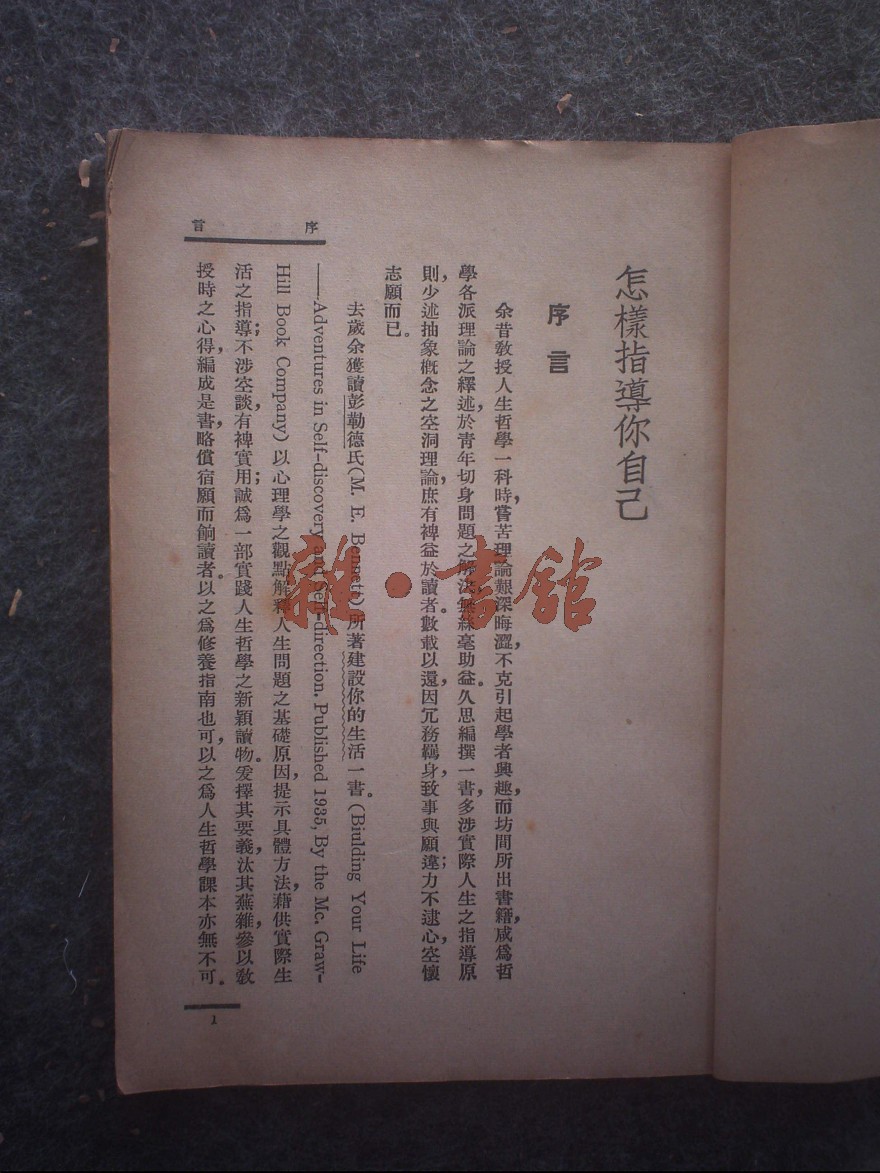 怎樣指導你自己
序言
余昔教授人生哲學一科時，嘗苦理論艱深晦澀，不克引起學者興趣，而坊間所出書籍，咸爲哲
學各派理論之釋述，於青年切身問題之解決，無絲毫助益。久思編撰一書，多涉實際人生之指導原
則，少述抽象概念之空洞理論，庶有裨益於讀者。數載以還，因冗務羈身，致事與願違；力不逮心，空懷
志願而已。
去歲余獲讀彭勒德氏(M. E. Bennett)所著建設你的生活一書。(Biulding Your Life
——Adventures in Self-discovery and Self-direction, Published 1935, By the Mc, Graw-
Hill Book Company)以心理學之觀點解釋人生問題之基礎原因，提示具體方法，藉供實際生
活之指導；不涉空談，有裨實用；誠爲一部實踐人生哲學之新穎讀物。爰擇其要義，汰其蕪雜，參以教
授時之心得，編成是書，略償宿願而餉讀者。以之爲修養指南也可，以之爲人生哲學課本亦無不可。
序言
1
雜·書館